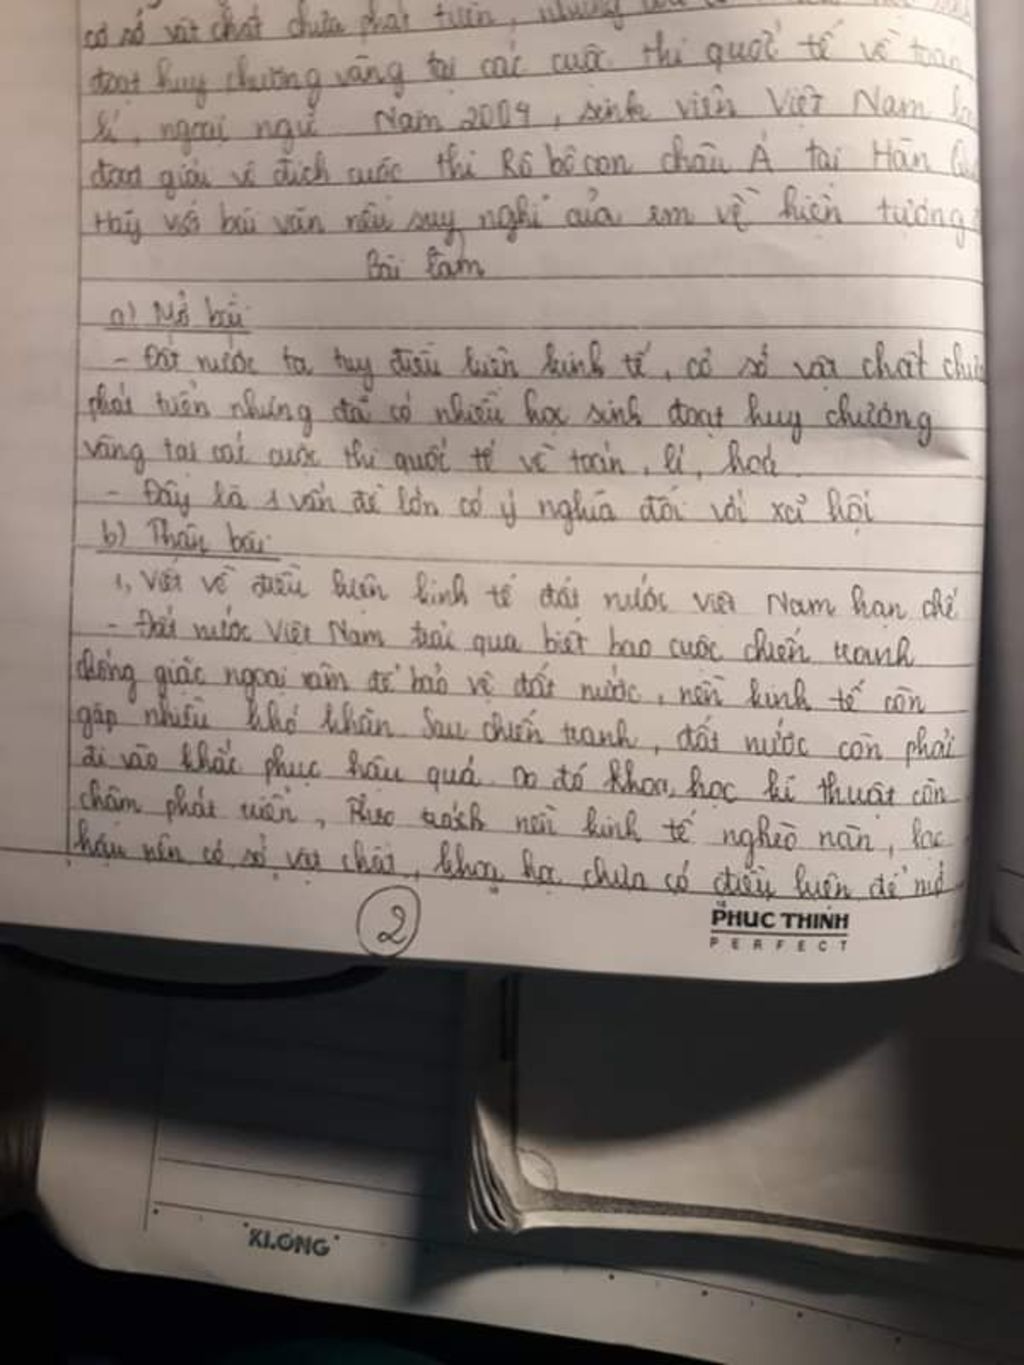 cơ sở vật chất chưa phát triển, nhưng
đoạt huy chương vàng tại các cuộc thi quốc tế về toán
lí, ngoại ngữ Năm 2004, sinh viên Việt Nam
đoạt giải vô địch cuộc thi Rô bô con châu Á tại Hàn
Hãy viết bài văn nêu suy nghĩ của em về hiện tượng
Bài làm
a) Mở bài
- Đất nước ta tuy điều kiện kinh tế, cơ sở vật chất chưa
phát triển nhưng đã có nhiều học sinh đoạt huy chương
vàng tại các cuộc thi quốc tế về toán, lí, hoá
- Đây là 1 vấn đề lớn có ý nghĩa đối với xã hội
b) Thân bài
1, Viết về điều kiện kinh tế đất nước Việt Nam hạn chế
- Đất nước Việt Nam trải qua biết bao cuộc chiến tranh
chống giặc ngoại xâm để bảo vệ đất nước, nền kinh tế còn
gặp nhiều khó khăn Sau chiến tranh, đất nước còn phải
đi vào khắc phục hậu quả Do đó khoa học kĩ thuật còn
chậm phát triển, nền kinh tế nghèo nàn, lạc
hậu nên cơ sở vật chất, khoa học chưa có điều kiện để mở
2
PHUC THINH
PERFECT
KLONG